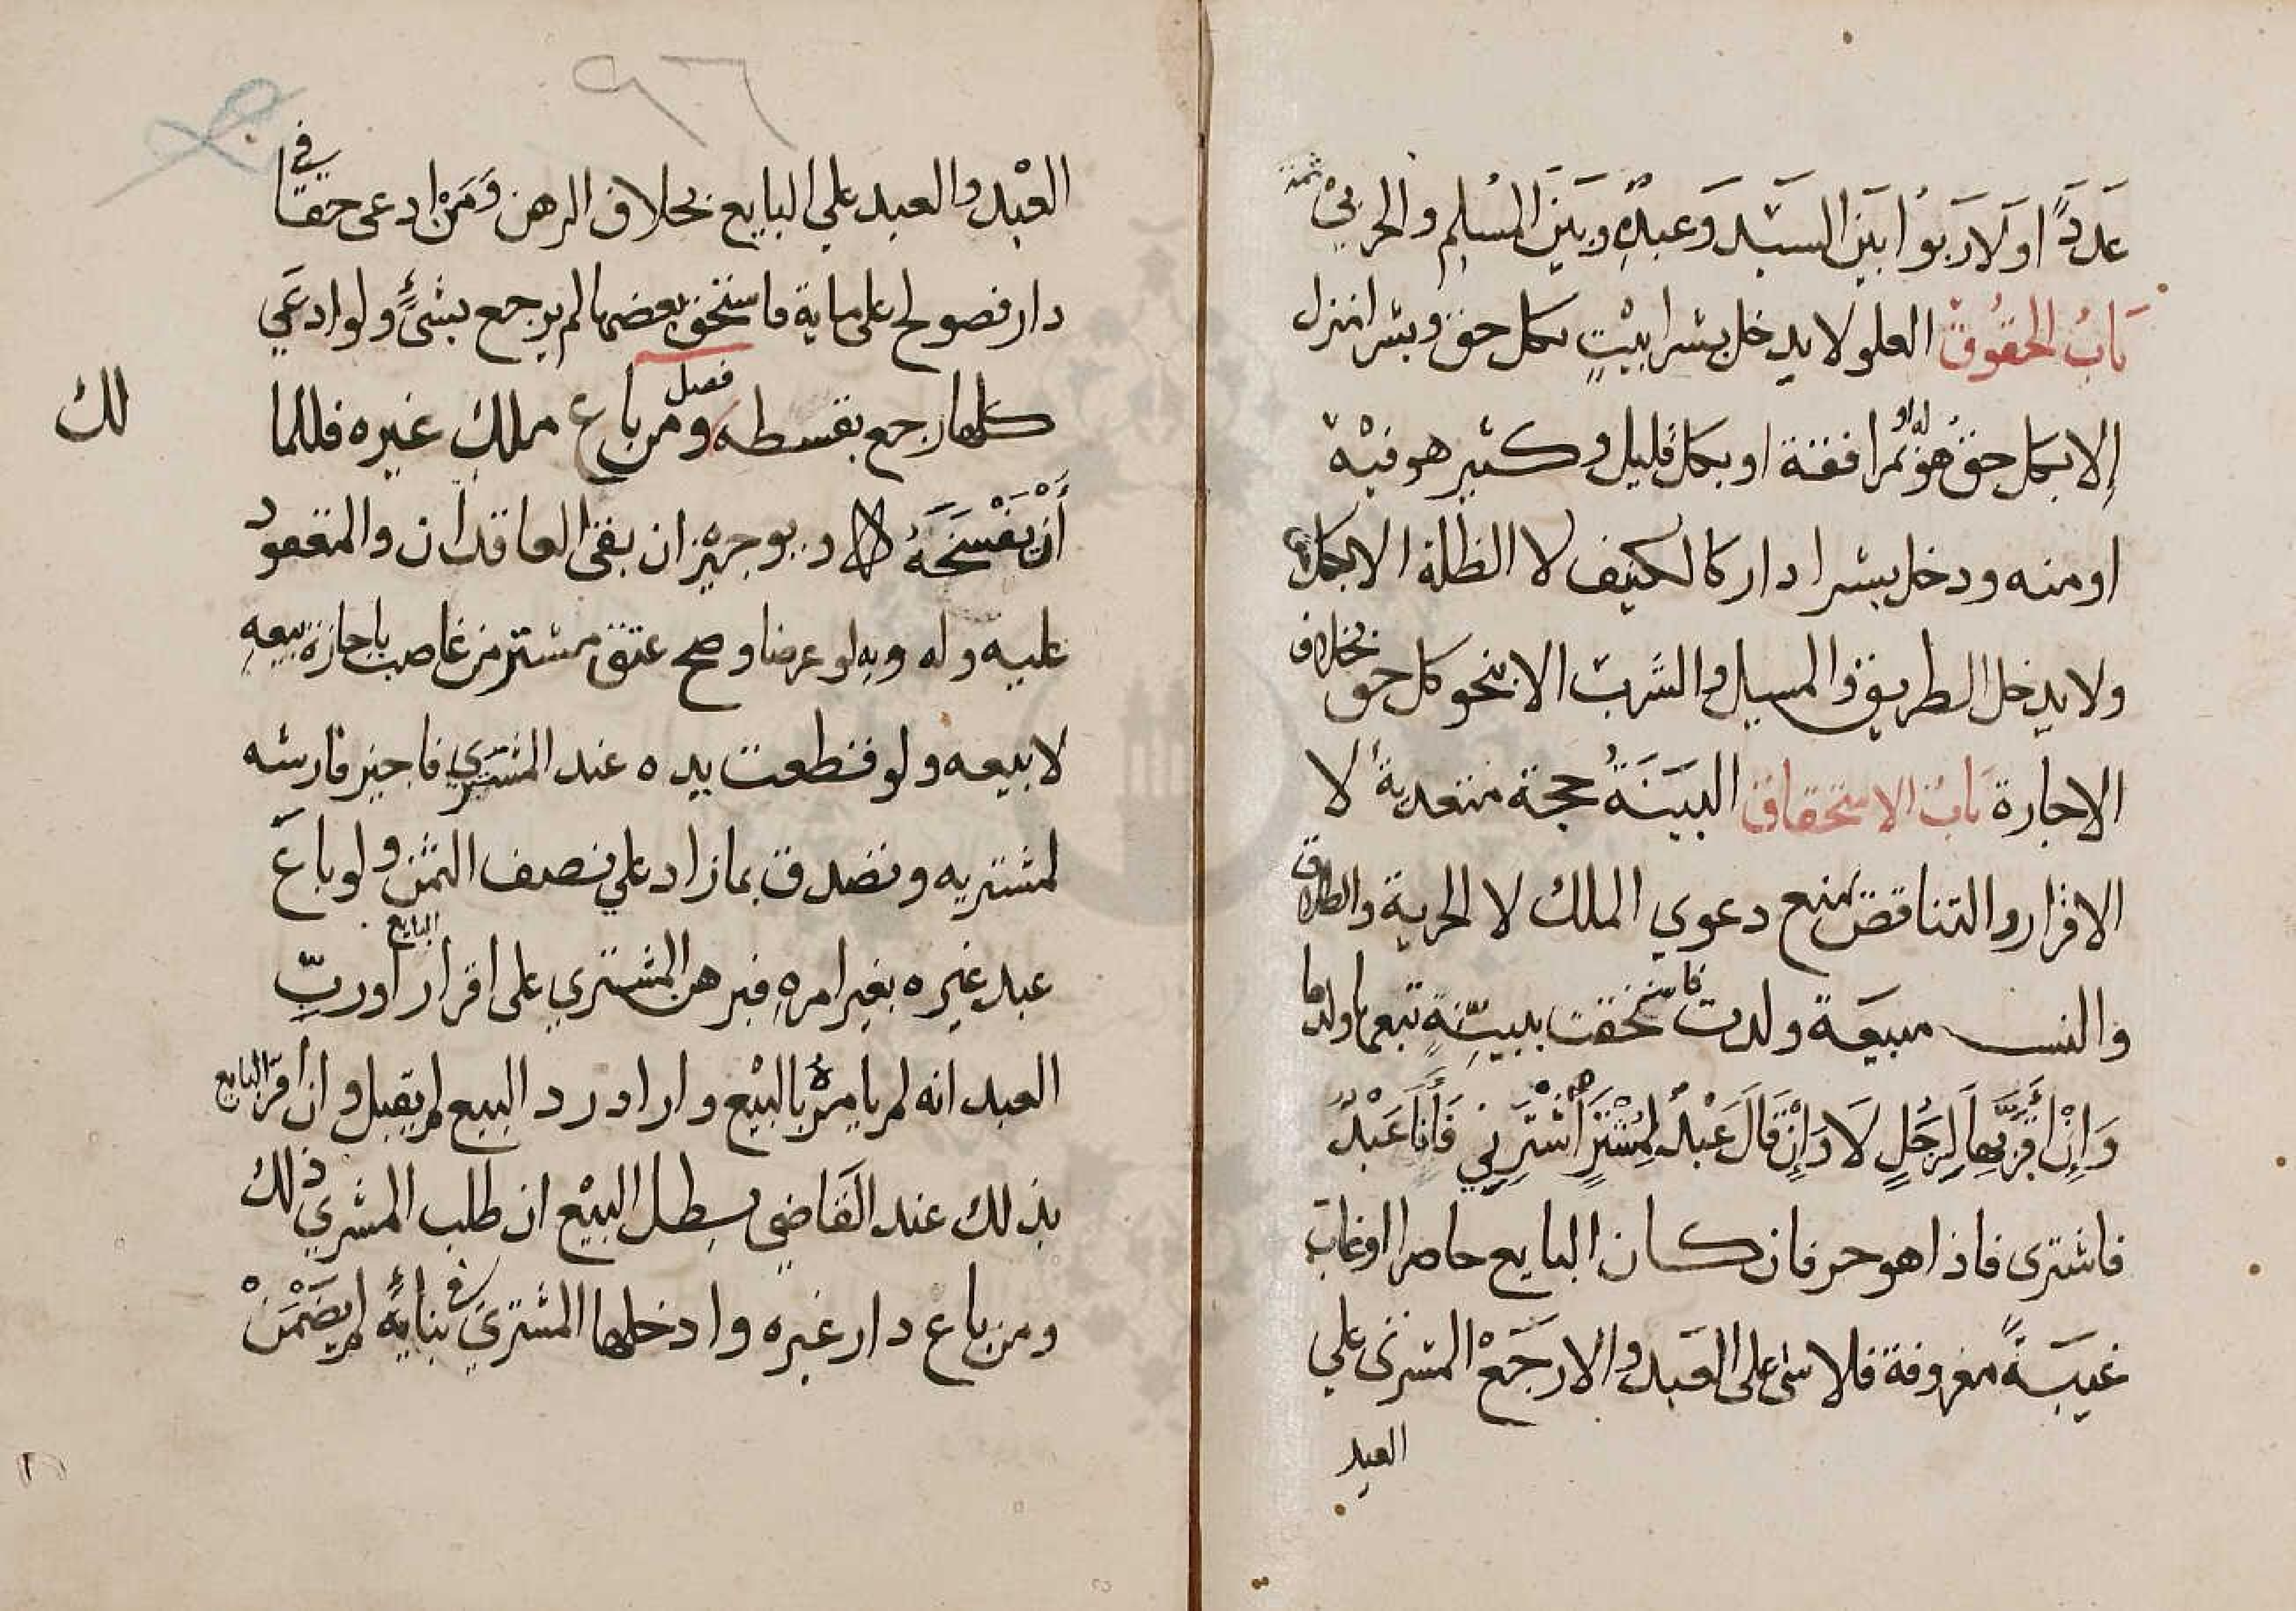 عَدَدًا وَلَا رَبوا بَيْنَ السَيّدِ وَعبدِهِ وبَيْنَ المُسْلِم والحربيْ ثمة
بَابُ الحقُوقْ العلو لا يدخل بشرا بيْتٍ بكل حق وبشرا منزل
إلا بكل حقٍ هوَ له او مرافقة او بكل قليل وكثير هو فيْه
او منه ودخل بشرا دار كالكنيف لا الظلة الا بكل حق
ولا يدخل الطريق والمسيل والشرب الا بنحو كل حق بخلاف
الاجارة بَابُ الاستحقاق البيَنَةُ حجة متعدية لا
الاقرار والتناقض يمنع دعوي الملك لا الحرية والطلاق
والنسب مبيعَة ولدت فاستحقت ببيّنَةٍ تبعها ولدها
وَإِنْ اقرّ بها لِرَجُلٍ لَا وَإِنْ قَالَ عَبْدٌ لِمُشْتَرٍ اشْتَرِنِي فَأَنَا عَبْدٌ
فاشترى فاذا هو حر فان كان البايع حاضرا او غاب
غيبَةً معروفة فلا شئ على العَبد والا رجَعْ المشترى علي
العبد
العبْد والعبد علي البايع بخلاف الرهن وَمَنْ ادعى حقا في
دار فصولح على ماية فاستحق بعضها لم يرجع بشئٍ ولو ادعَي
كلها رجع بقسطه فصل ومن باع ملك غيره فللما
لك
أَنْ يَفْسَخَهُ و يجيْز ان بقي العاقدان والمعقود
عليه وله وبِهِ لو عرضا وصح عتق مشتر من غاصب باجازة بيعهِ
لا بيعه ولو قطعت يده عند المشتري فاجيز فارشه
لمشتريه وتصدق بما زاد علي نصف الثمن ولو باعَ
عبد غيره بغير امرهِ فبرهن المشتري على اقرار البايع او ربّ
العبد انه لم يامرْهُ بالبيْع واراد رد البيع لم يقبل وان أقرّ البايع
بذلك عند القَاضي بطل البيْع ان طلب المشري ذلك
ومن باع دار غيره وادخلها المشتري في بنايهِ لم يضْمَنْ